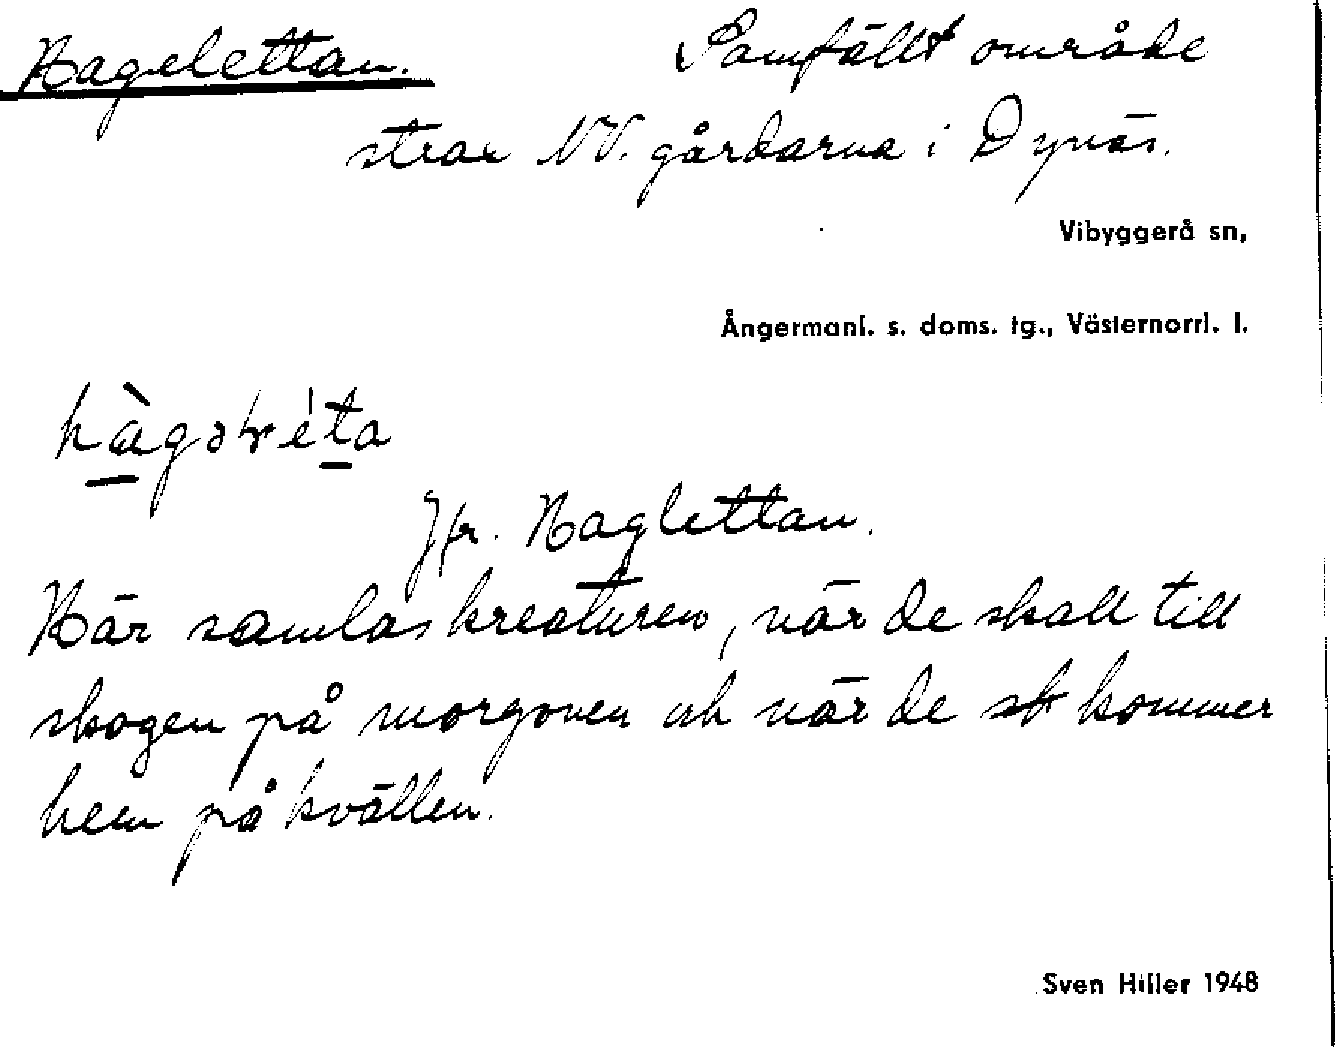 Hagelettan. Samfällt område
strax NV. gårdarna i Dynäs.
Vibyggerå sn,
Ångermanl. s. doms. tg., Västernorrl. l.
Jfr. Haglettan.
Här samlas kreaturen, när de skall till
skogen på morgonen och när de kommer
hem på kvällen.
Sven Hiller 1948